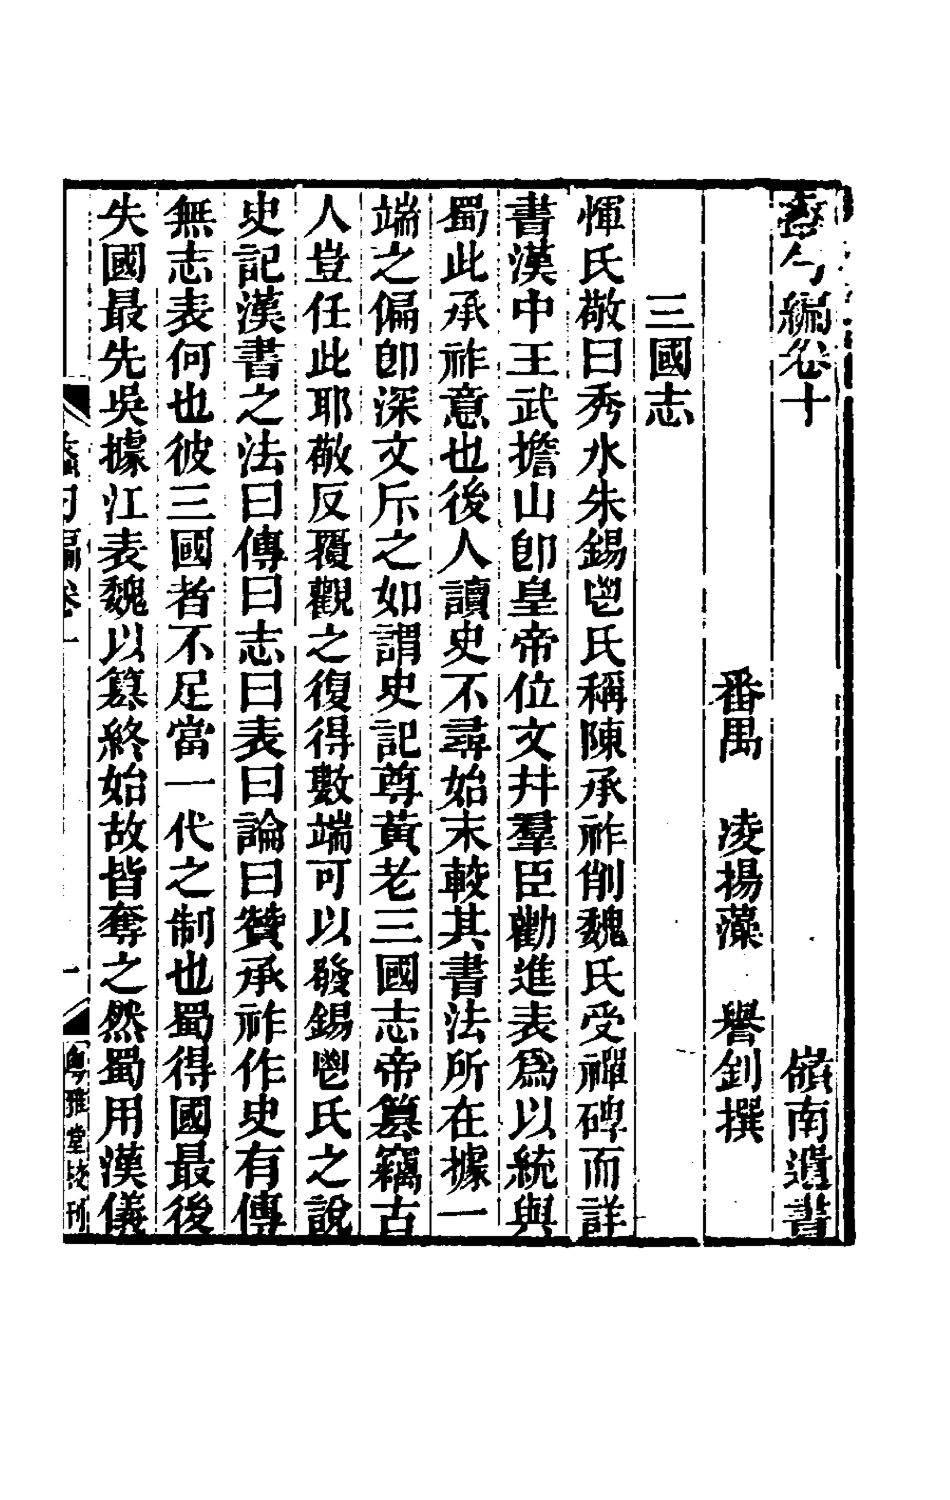 蠡勺編卷十　嶺南遺書
番禺　凌揚藻　譽釗撰
三國志
惲氏敬曰秀水朱錫鬯氏稱陳承祚削魏氏受禪碑而詳
書漢中王武擔山卽皇帝位文幷羣臣勸進表爲以統與
蜀此承祚意也後人讀史不尋始末較其書法所在據一
端之偏卽深文斥之如謂史記尊黃老三國志帝篡竊古
人豈任此耶敬反覆觀之復得數端可以發錫鬯氏之說
史記漢書之法曰傳曰志曰表曰論曰贊承祚作史有傳
無志表何也彼三國者不足當一代之制也蜀得國最後
失國最先吳據江表魏以篡終始故皆奪之然蜀用漢儀
蠡勺編卷十　一　粵雅堂校刊